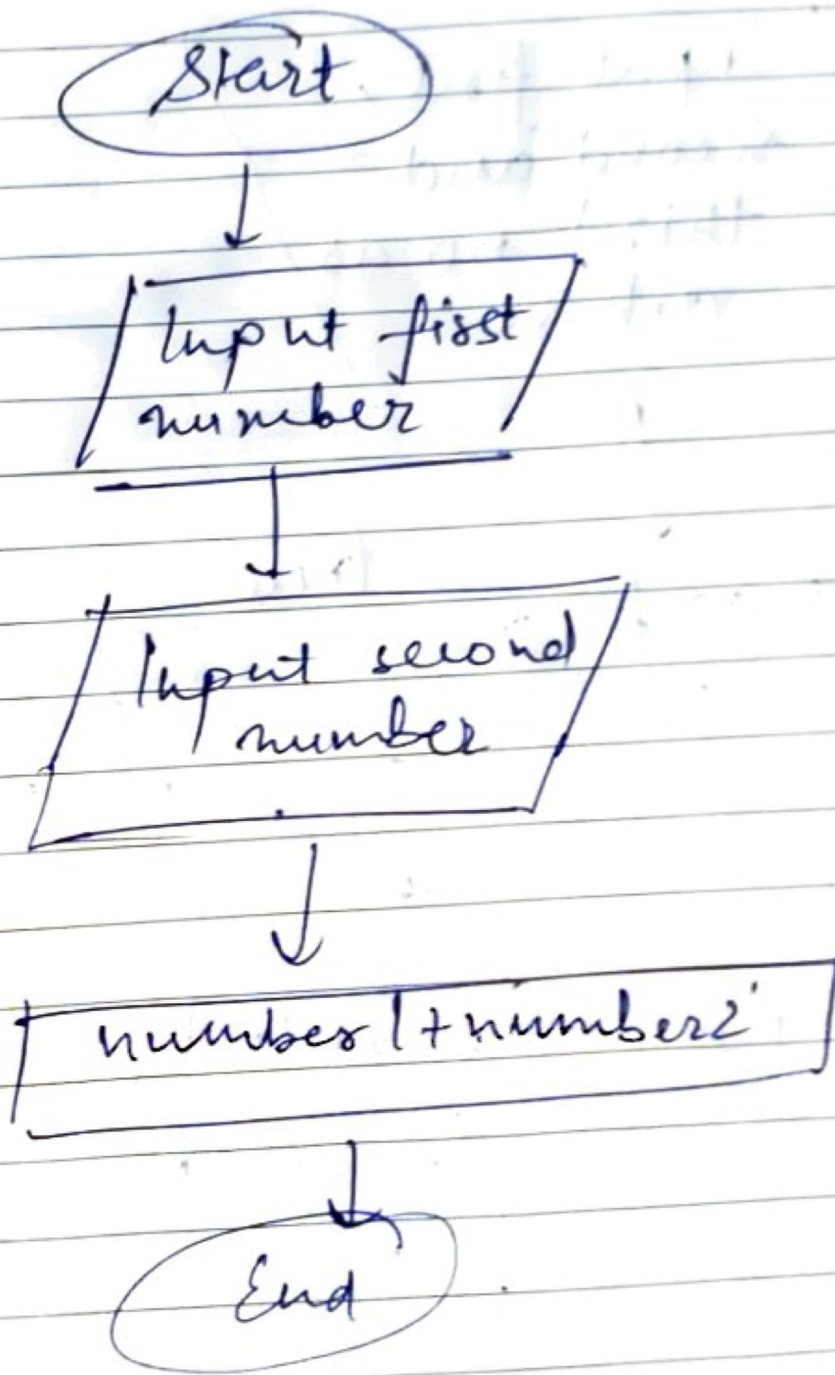 Start
Input first
number
Input second
number
number1+number2
End